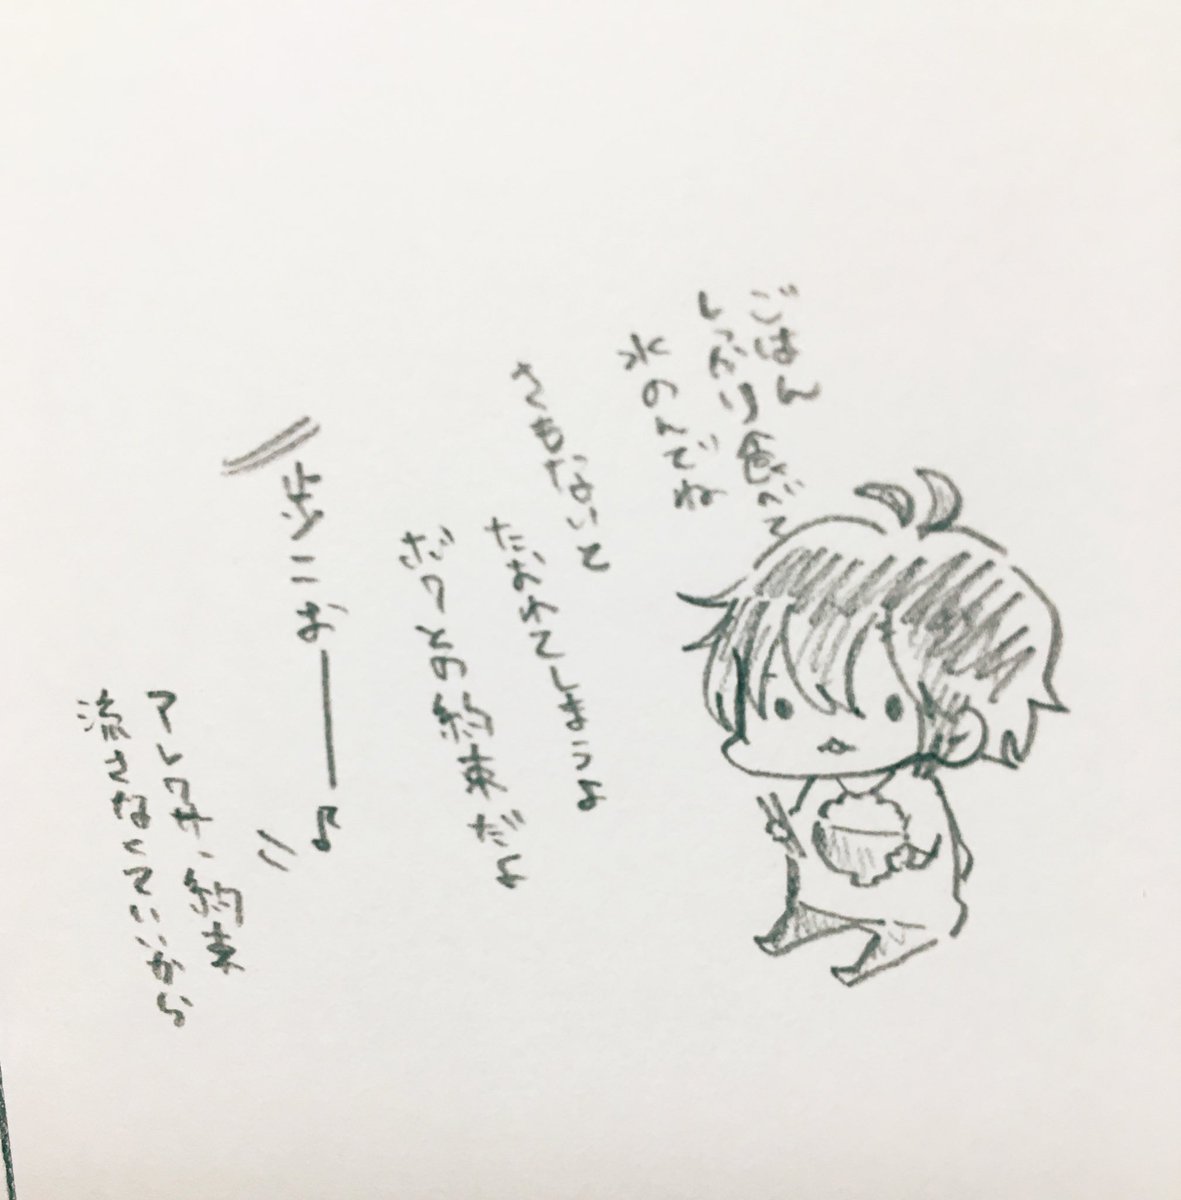 ごはん
しっかり食べて
水のんでね
さもないと
たおれてしまうよ
ボクとの約束だよ
歩こお――♪
アレクサ、約束
流さなくていいから